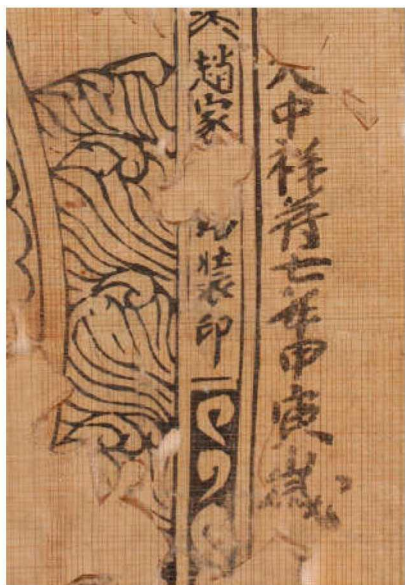 大中祥符七年甲寅歲
趙家裝印